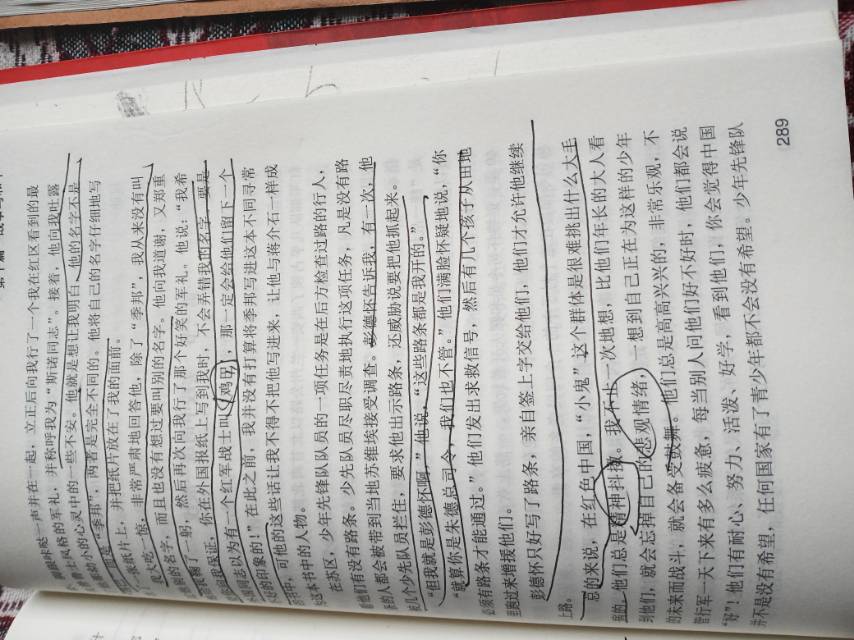 脚跟咔哒一声并在一起，立正后向我行了一个我在红区看到的最
士风格的军礼，并称呼我为“斯诺同志”。接着，他向我吐露
幼小的心灵中的一些不安。他就是想让我明白，他的名字不是
而是“季邦”，两者是完全不同的。他将自己的名字仔细地写
一张纸片上，并把纸片放在了我的面前。
我大吃一惊，非常严肃地回答他，除了“季邦”，我从来没有叫
别的名字，而且也没有想过要叫别的名字。他向我道谢，又郑重
了一躬，然后再次向我行了那个好笑的军礼。他说：“我希
我保证，你在外国报纸上写到我时，不会弄错我的名字。要是
同志以为有一个红军战士叫‘鸡巴’，那一定会给他们留下一个
的印象的！”在此之前，我并没有打算将季邦写进这本不同寻常
书中，可他的这些话让我不得不把他写进来，让他与蒋介石一样成
这本书中的人物。
在苏区，少年先锋队队员的一项任务是在后方检查过路的行人，
他们有没有路条。少先队员尽职尽责地执行这项任务，凡是没有路
的人都会被带到当地苏维埃接受调查。彭德怀告诉我，有一次，他
几个少先队员拦住，要求他出示路条，还威胁说要把他抓起来。
“但我就是彭德怀啊，”他说，“这些路条都是我开的。”
“就算你是朱德总司令，我们也不管。”他们满脸怀疑地说，“你
必须有路条才能通过。”他们发出求救信号，然后有几个孩子从田地
里跑过来增援他们。
彭德怀只好写了路条，亲自签上字交给他们，他们才允许他继续
上路。
总的来说，在红色中国，“小鬼”这个群体是很难挑出什么大毛
病的。他们总是精神抖擞。我不止一次地想，比他们年长的大人看
到他们，就会忘掉自己的悲观情绪，一想到自己正在为这样的少年
的未来而战斗，就会备受鼓舞。他们总是高高兴兴的，非常乐观，不
管行军一天下来有多么疲惫，每当别人问他们好不好时，他们都会说
“好”！他们有耐心、努力、活泼、好学，看到他们，你会觉得中国
并不是没有希望，任何国家有了青少年都不会没有希望。少年先锋队
289